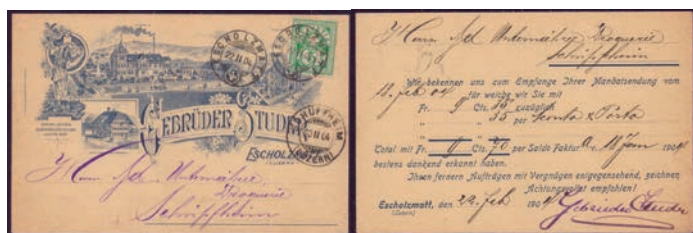 ESCHOLZMATT
22.II.04
GEBRÜDER STUDER
ESCHOLZM
SCHÜPFHEIM
(LUZERN)
Herrn Ad. Unternährer
Droguerie
Schüpfheim
Herrn Ad. Unternährer Droguerie
Schüpfheim
Wir bekennen uns zum Empfange Ihrer Mandatsendung vom
18. Feb 04 für welche wir Sie mit
Fr. 9 Cts. 35 zuzüglich
" " 35 per Sconto & Porto
Total mit Fr. 9 Cts. 70 per Saldo Faktur v. 18 Jan 1904
bestens dankend erkannt haben.
Ihren fernern Aufträgen mit Vergnügen entgegensehend, zeichnen
Achtungsvollst empfohlen!
Escholzmatt, den 22. Feb 1904
(Luzern)
Gebrüder Studer